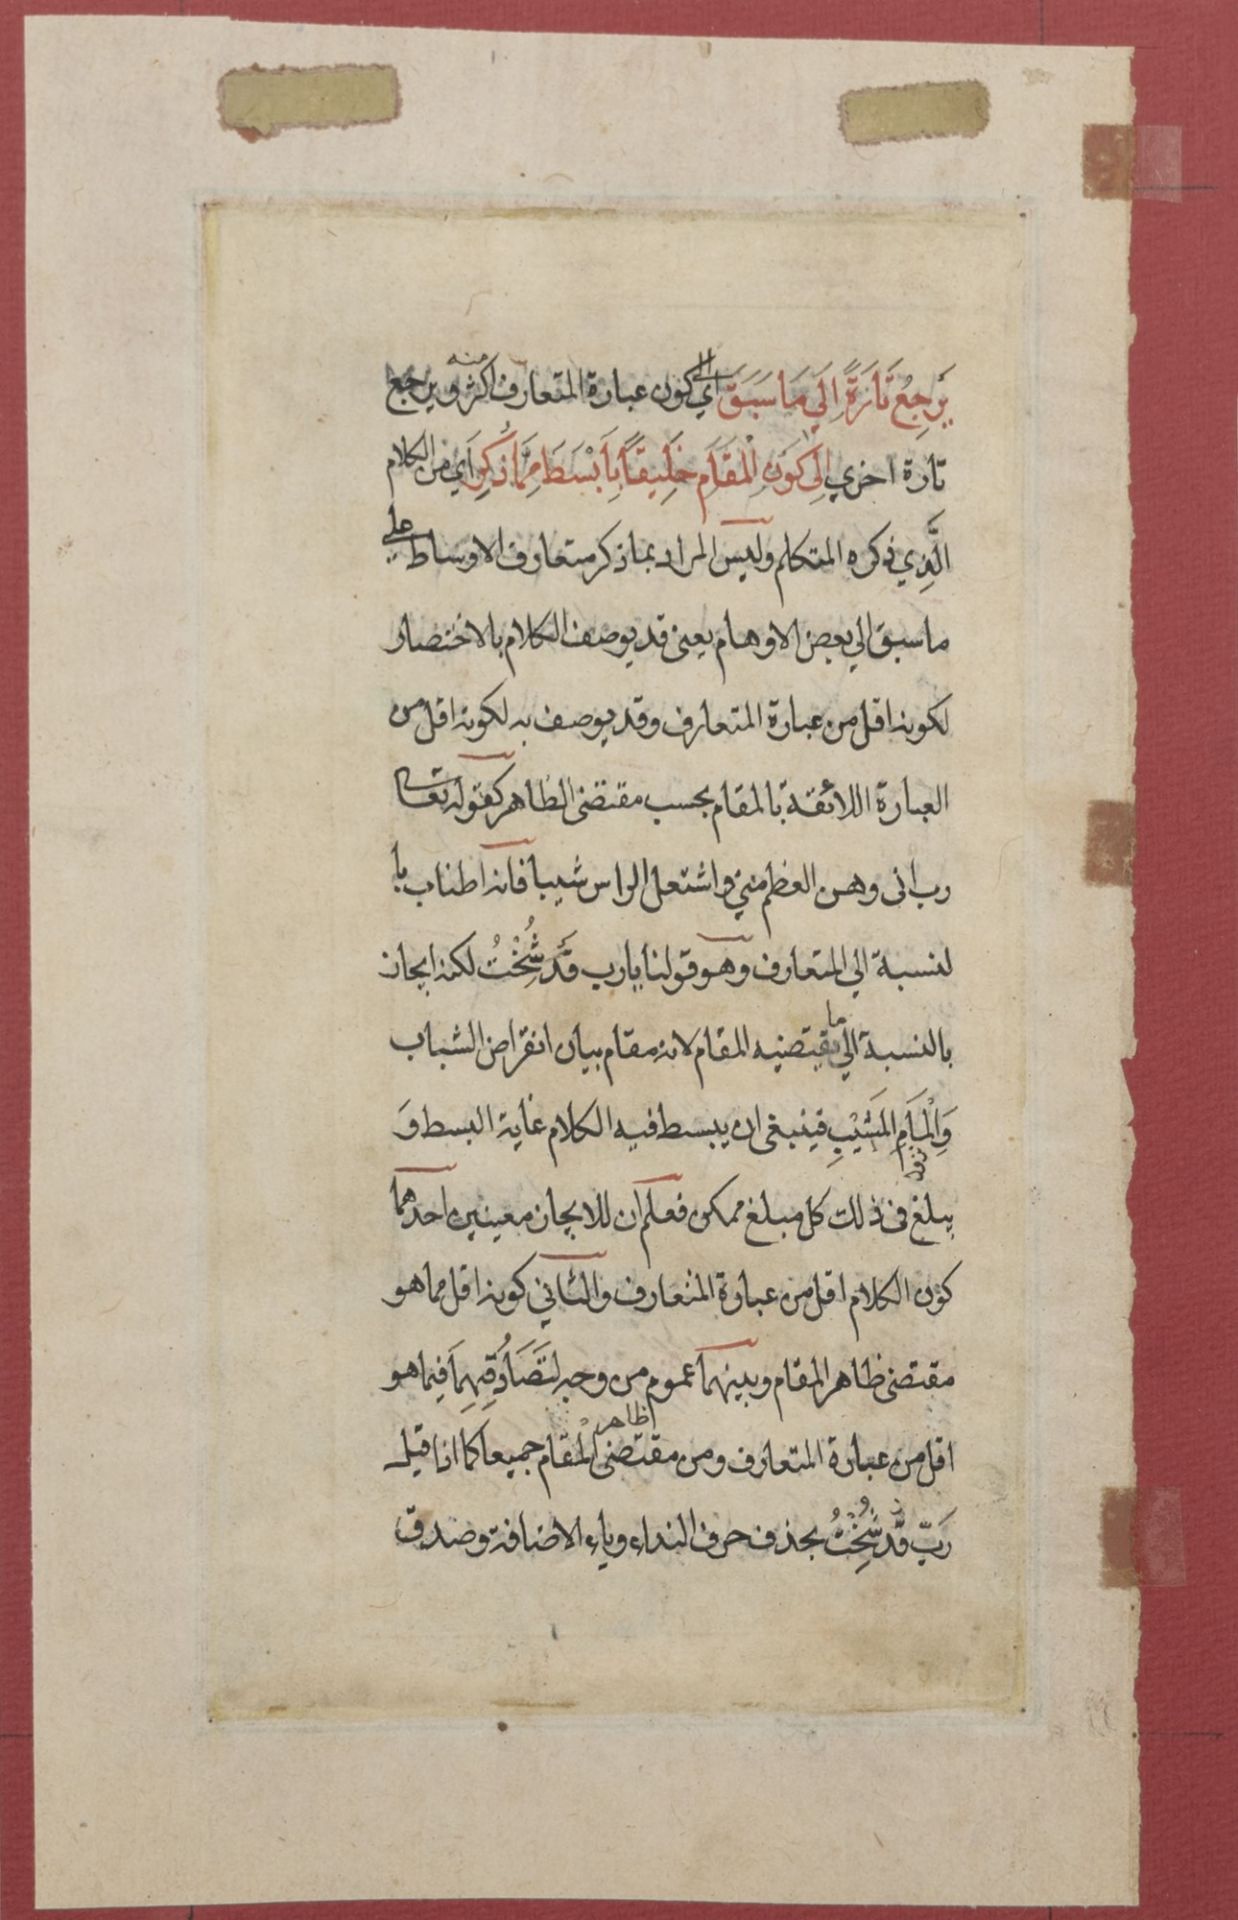 يَرجِعُ تَارَةً اِلَي مَا سَبَقَ اي الي كون عبارة المتعارف اكثر منه ويرجع
تارة اخري اِلي كَونِ الْمَقَامِ خَلِيقًا بِاَبْسَطَ مِمَّا ذُكِرَ اَي من الكلام
الَّذِي ذكره المتكلم وليس المراد بما ذكر متعارف الاوساط علي
ما سبق الي بعض الاوهام يعني قد يوصف الكلام بالاختصار
لكونه اقل من عبارة المتعارف وقد يوصف به لكونه اقل من
العبارة اللائقة بالمقام بحسب مقتضى الظاهر كقوله تعالى
رب انى وهن العظم مني واشتعل الراس شيبا فانه اطناب با
لنسبة الي المتعارف وهو قولنا يا رب قَد شُخْتُ لكنه ايجاز
بالنسبة الي ما يقتضيه المقام لانه مقام بيان انقراض الشباب
وَاِلْمَامِ المَشَيْبِ فينبغي ان يبسط فيه الكلام غاية البسط وَ
يبلغ فى ذلك كل مبلغ ممكن فعلم ان للايجاز معنيين احدهما
كون الكلام اقل من عبارة المتعارف والثاني كونه اقل مما هو
مقتضى ظاهر المقام وبينهما عموم من وجه لتَصَادُقِهِمَا فيما هو
اقل من عبارة المتعارف ومن مقتضى ظاهر الْمقام جميعا كما اذا قيل
رَبِّ قَد شُخْتُ بحذف حرف النداء وياء الاضافة وصدق